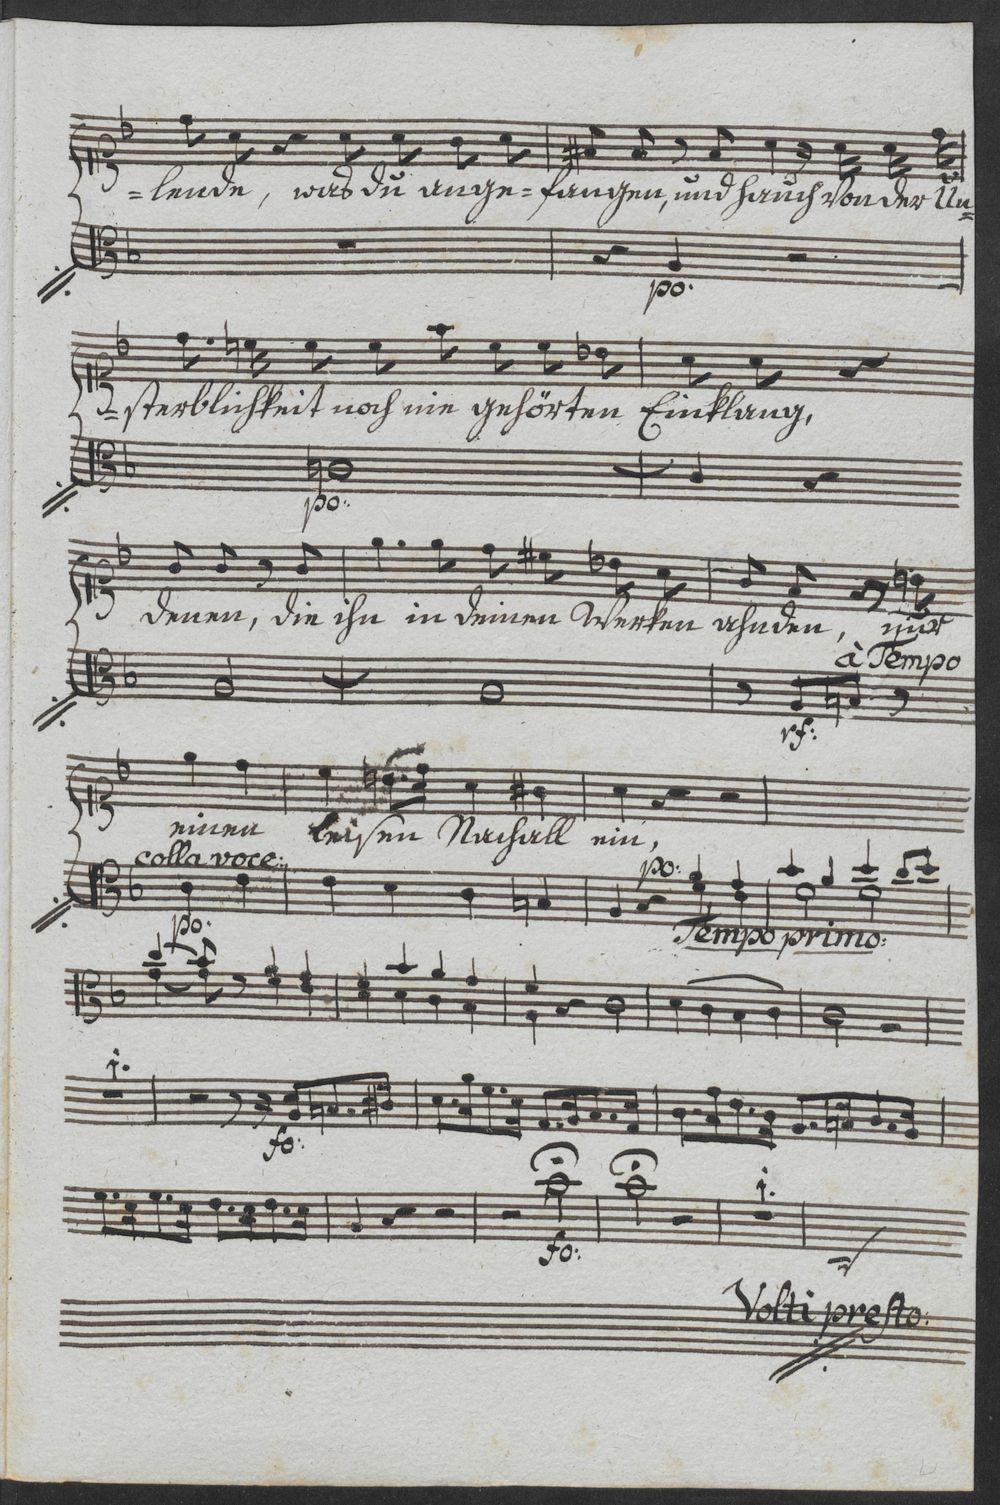 =lende, was du ange=fangen, und hauch von der Un=
po.
=sterblichkeit noch nie gehörten Einklang,
po:
denen, die ihn in deinen Werken ahnden, nur
à Tempo
rf:
einen leisen Nachall ein,
colla voce:
po:
po.
Tempo primo:
i.
fo:
i.
fo:
Volti presto: